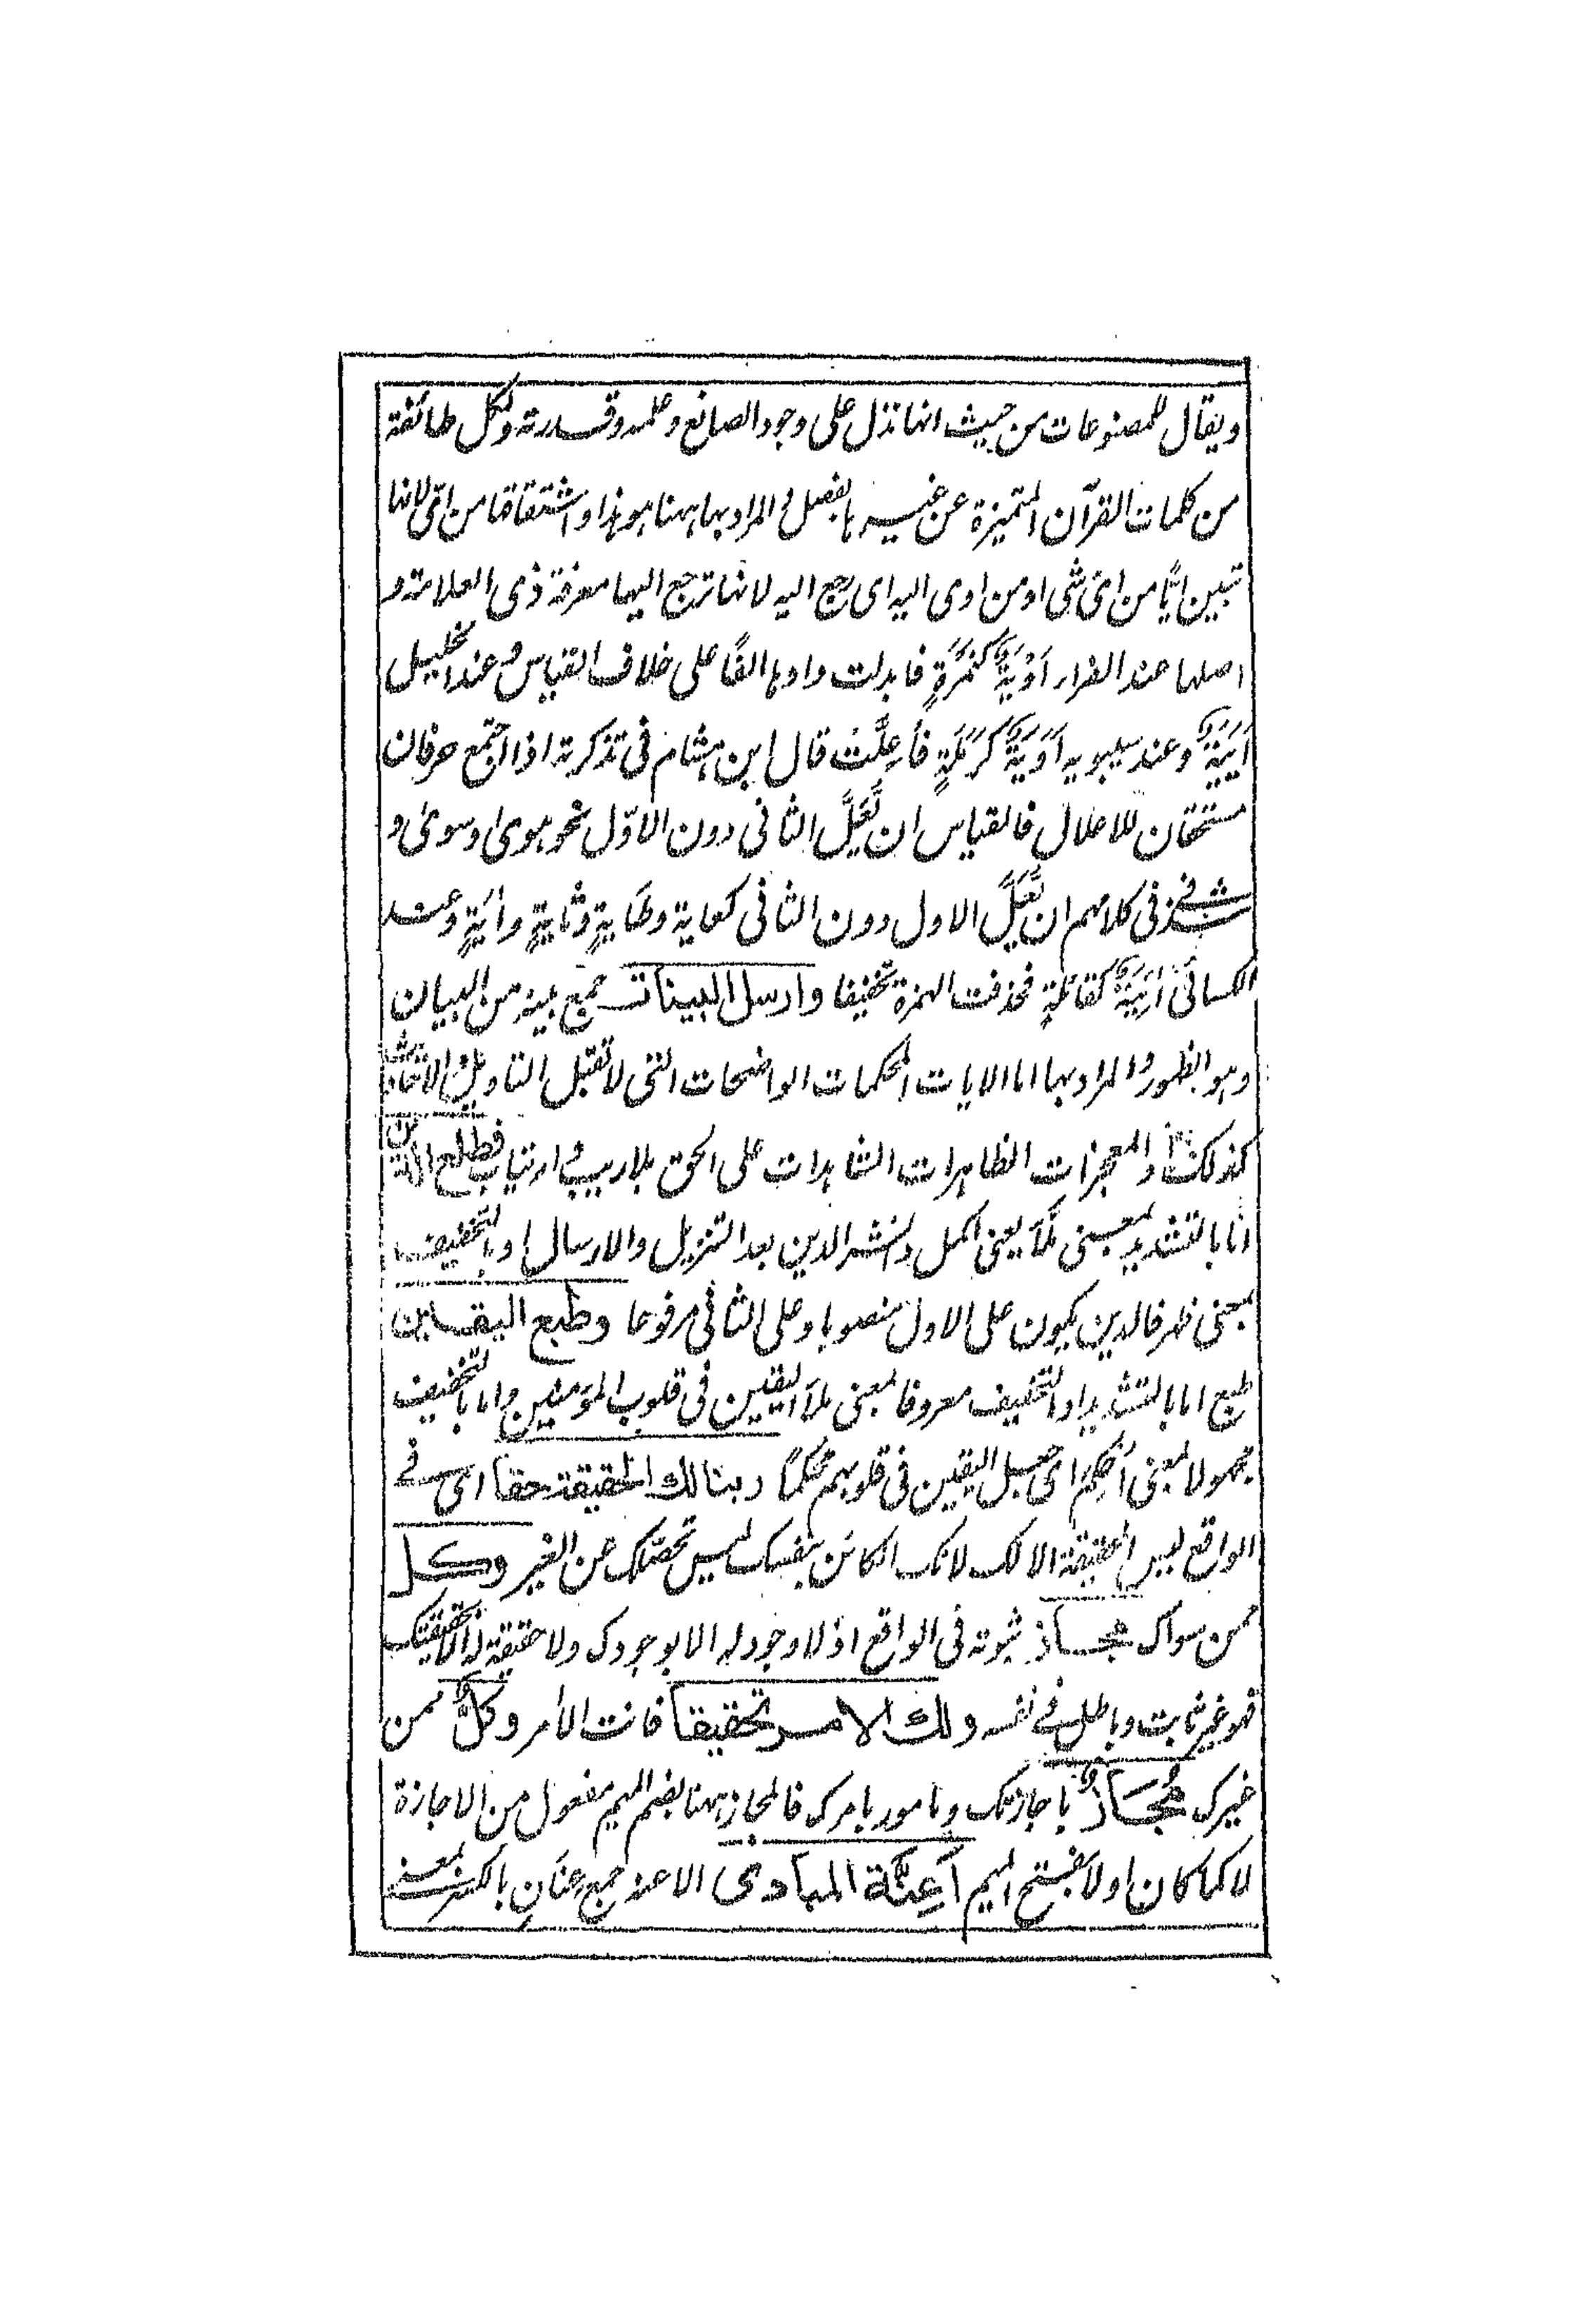 ويقال للمصنوعات من حيث انها تدل على وجود الصانع وعلمه وقدرته ولكل طائفة
من كلمات القرآن المتميزة عن غيره بالفصل والمراد بها ههنا هو هذا واشتقاقها من اىّ لانها
تبين ايًّا من اىّ شى او من اوى اليه اى رجع اليه لانها ترجع اليها معرفة ذى العلامة و
اصلها عند الفراء اَوْيَةٌ كتَمْرَةٍ فابدلت واوها الفًا على خلاف القياس وعند الخليل
اَيَيَةٌ وعند سيبويه اَوَيَةٌ كرَمَلَةٍ فأُعِلَّت قال ابن هشام فى تذكرته اذا اجتمع حرفان
مستحقان للاعلال فالقياس ان تُعَلَّ الثانى دون الاوّل نحو هوىٰ وسوىٰ و
شذ فى كلامهم ان تُعَلَّ الاول دون الثانى كغاية وطَايةٍ وثَايةٍ واٰيَةٍ وعند
الكسائى آئِيَةٌ كقائلةٍ فحذفت الهمزة تخفيفا وارسل البينات جمع بينة من البيان
وهو الظهور والمراد بها اما الايات المحكمات الواضحات التى لا تقبل التاويل
كذلك والمعجزات الظاهرات الشاهدات على الحق بلا ريب وارتياب فطلع الدين
امّا بالتشديد بمعنى ملأ يعنى اكمل ونشر الدين بعد التنزيل والارسال او بالتخفيف
بمعنى ظهر فالدين يكون على الاول منصوبا وعلى الثانى مرفوعا وطبع اليقين
طبع اما بالتشديد او التخفيف معروفا بمعنى ملأ اليقين فى قلوب المؤمنين واما بالتخفيف
مجهولا بمعنى اُحكِمَ اى جعل اليقين فى قلوبهم محكمًا ربنا لك الحقيقة حقا اى فى
الواقع ليس الحقيقة الا لك لانك الكائن بنفسك ليس تحصّلك عن الغير وكل
ممن سواك مجاز ثبوته فى الواقع اذ لا وجود له الا بوجودك ولا حقيقة له الا بحقيقتك
فهو غير ثابت وباطل فى نفسه ولك الامر تحقيقا فانت الأمر وكلٌّ ممن
غيرك مُجَازٌ باجازتك ومامور بامرك فالمجاز ههنا بضم الميم مفعول من الاجازة
لا كما كان اولا بفتح الميم اَعِنَّة المبادى الاعنة جمع عِنَانٍ بالكسر بمعنى